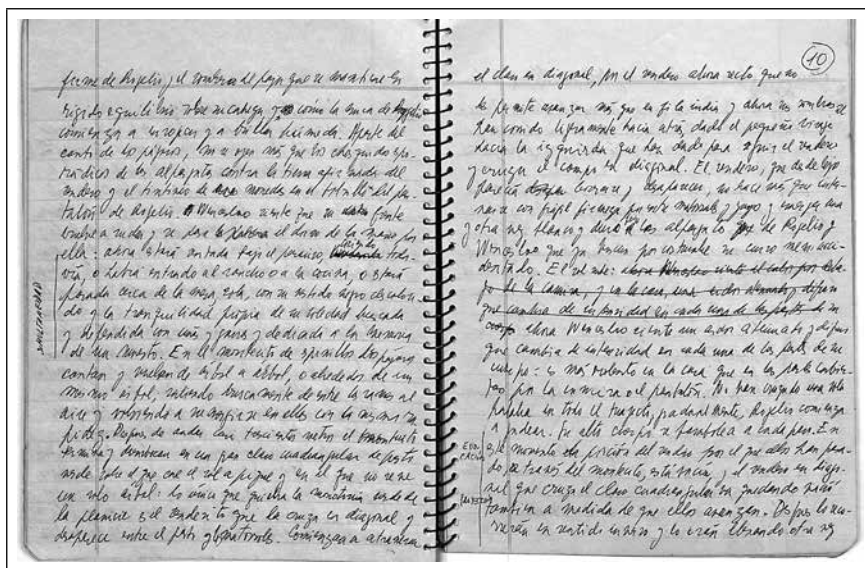 firme de Rogelio, y el sombrero de paja que se mantiene en
rígido equilibrio sobre su cabeza y como la nuca de Rogelio
comienza a enrojecer y a brillar húmeda. Aparte del
canto de los pájaros, no se oye más que los chasquidos espo-
rádicos de las alpargatas contra la tierra apisonada del
sendero y el tintineo de monedas en el bolsillo del pan-
talón de Rogelio. Wenceslao siente que su frente
vuelve a sudar y se pasa el dorso de la mano por
ella: ahora estará sentada bajo el paraíso, todavía
o habrá entrado al rancho o a la cocina, o estará
parada cerca de la mesa, sola, con su vestido negro descolori-
do y la tranquilidad propia de su soledad buscada
y defendida con uñas y garras y dedicada a la memoria
de un muerto. En el montecito de espinillos los pájaros
cantan y vuelan de árbol a árbol, o alrededor de un
mismo árbol, saliendo bruscamente de entre las ramas al
aire y volviendo a sumergirse en ellas con la misma ra-
pidez. Después de andar casi trescientos metros el montecito
termina y desembocan en un gran claro cuadrangular de pasto
verde sobre el que cae el sol a pique y en el que no se ve
un solo árbol: lo único que quiebra la monotonía verde de
la planicie es el senderito que la cruza en diagonal y
desaparece entre el pasto y los matorrales. Comienzan a atravesar
SIMULTANEIDAD
10
el claro en diagonal, por el sendero ahora recto que no
les permite avanzar más que en fila india y ahora sus sombras se
han corrido ligeramente hacia atrás, dado el pequeño viraje
hacia la izquierda que han dado para seguir el sendero
y cruzar el campo en diagonal. El sendero, que desde lejos
parecía borrarse y desaparecer, no hace más que inter-
narse con frágil firmeza entre matorrales y yuyos y emerger una
y otra vez blanco y duro a las alpargatas de Rogelio y
Wenceslao que ya buscan por costumbre su curso menos acci-
dentado. El sol sube: ahora Wenceslao siente el calor por deba-
jo de la camisa, y en la cara, un ardor atenuado y difuso
que cambia de intensidad en cada una de las partes de su
cuerpo ahora Wenceslao siente un ardor atenuado y difuso
que cambia de intensidad en cada una de las partes de su
cuerpo: es más violento en la cara que en las partes cubier-
tas por la camisa o el pantalón. No han cruzado una sola
palabra en todo el trayecto, gradualmente, Rogelio comienza
a jadear. Su alto cuerpo se bambolea a cada paso. En
ese momento la porción del sendero por el que ellos han pasa-
do, a través del montecito, está vacía, y el sendero en diago-
nal que cruza el claro cuadrangular va quedando vacío
también a medida que ellos avanzan. Después lo atra-
vesarán en sentido inverso y lo irán llenando otra vez
EVO-
CACIÓN